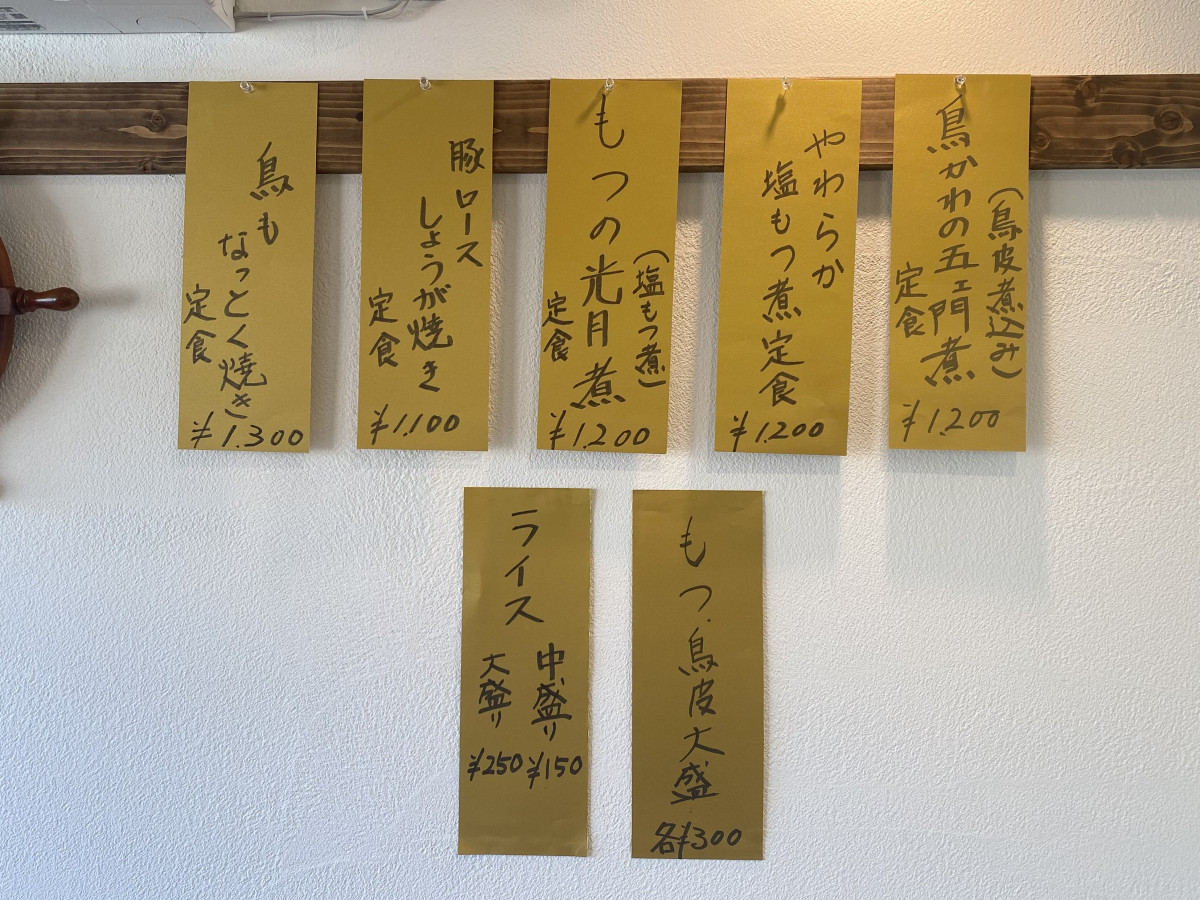 鳥かわの五ェ門煮
(鳥皮煮込み)
定食
¥1.200
やわらか
塩もつ煮定食
¥1.200
もつの光月煮
(塩もつ煮)
定食
¥1.200
豚ロース
しょうが焼き
定食
¥1.100
鳥も
なっとく焼き
定食
¥1.300
もつ.鳥皮大盛
各¥300
ライス
中盛り
¥150
大盛り
¥250